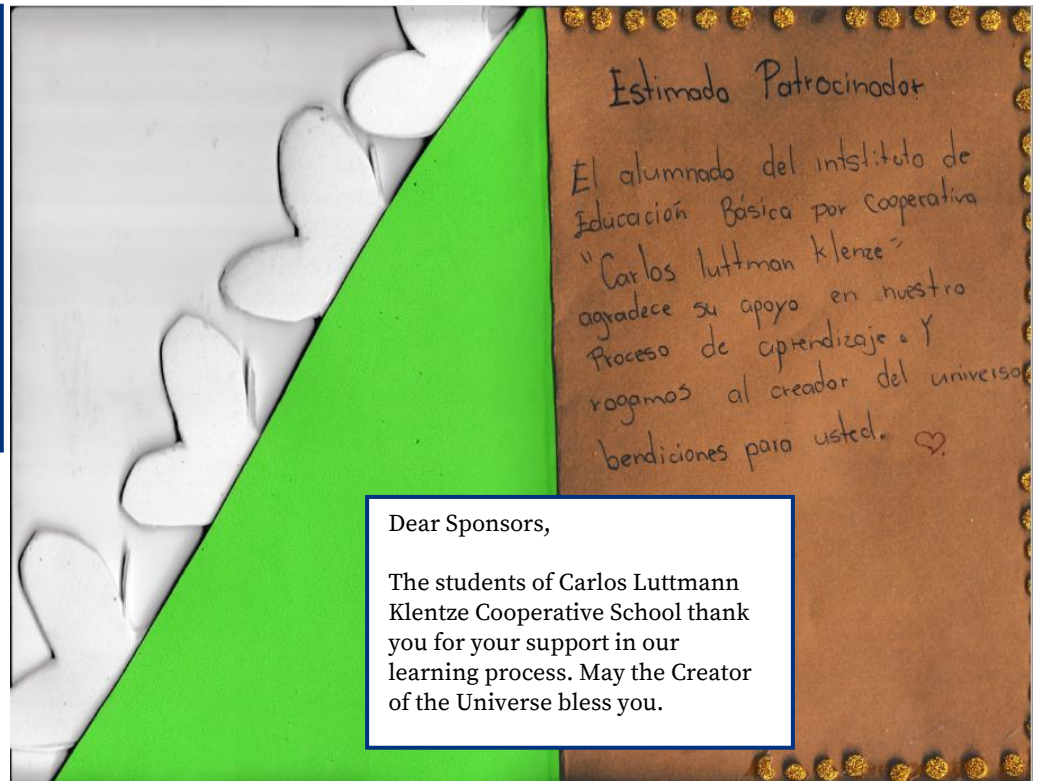 Estimado Patrocinador
El alumnado del intstituto de
Educación Básica por Cooperativa
"Carlos luttman klenze"
agradece su apoyo en nuestro
Proceso de aprendizaje. Y
rogamos al creador del universo
bendiciones para usted.
Dear Sponsors,
The students of Carlos Luttmann
Klentze Cooperative School thank
you for your support in our
learning process. May the Creator
of the Universe bless you.